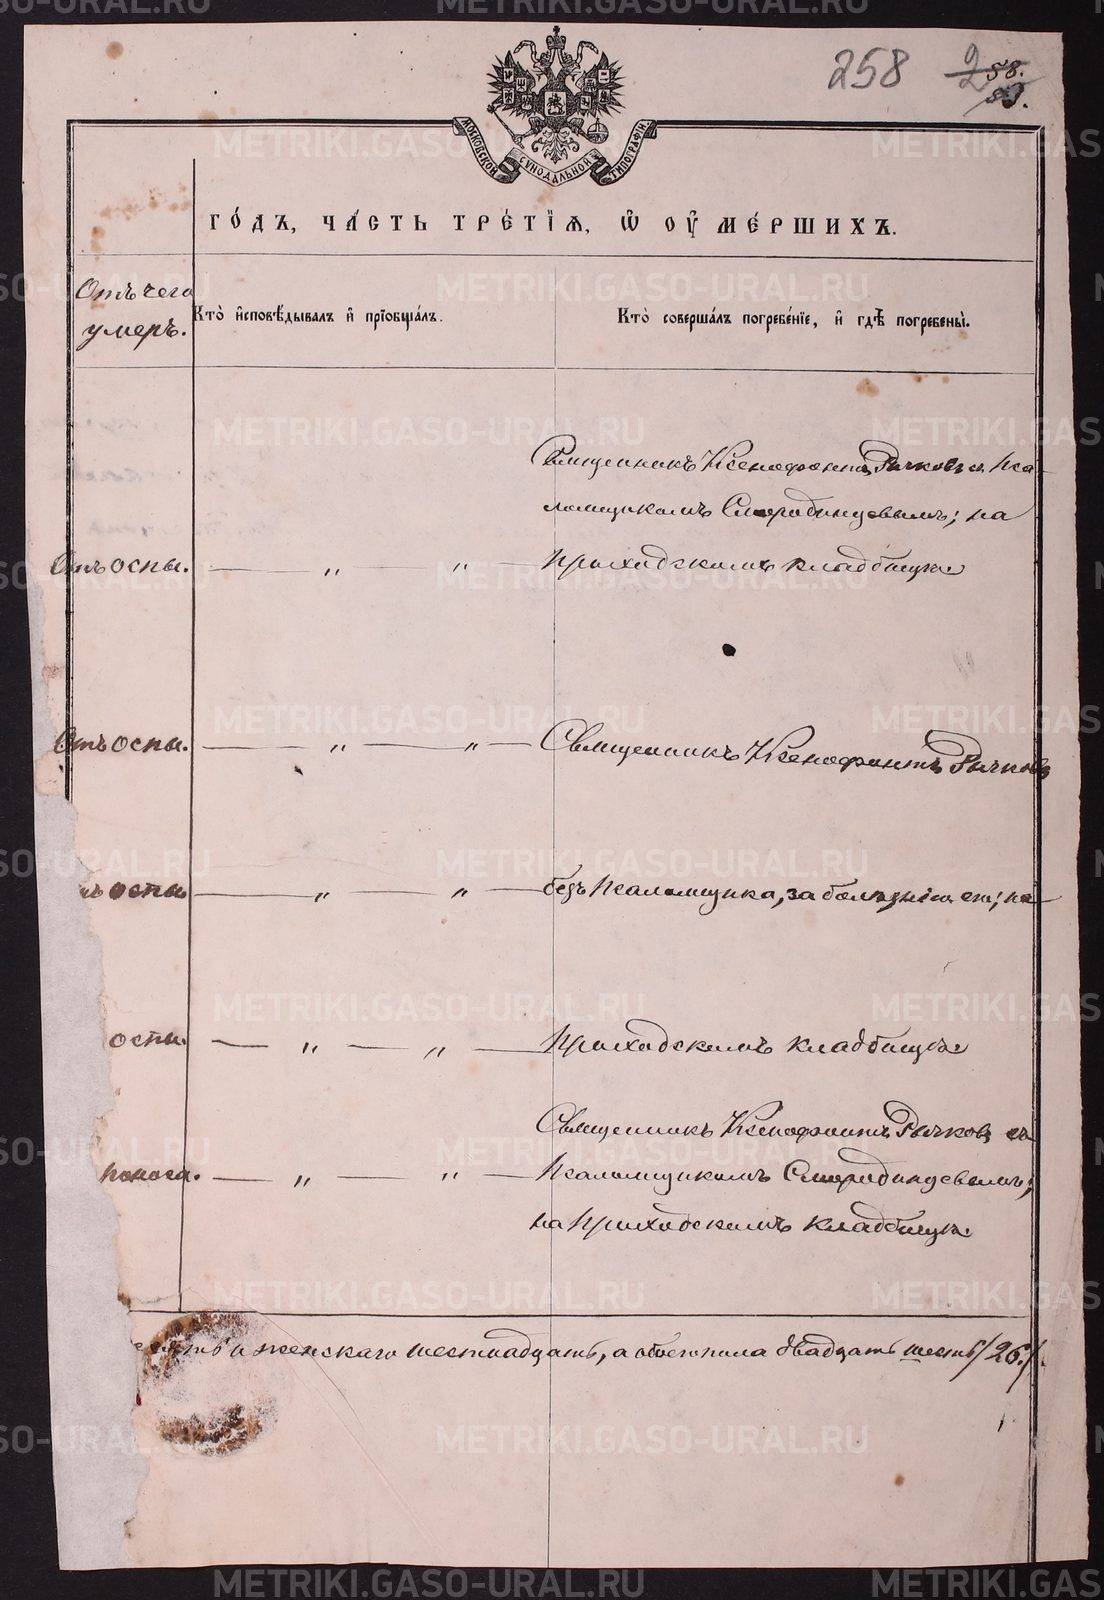 258 258.
59.
МОСКОВСКОЙ СѴНОДАЛЬНОЙ ТИПОГРАФІИ.
ГО́ДЪ, ЧА́СТЬ ТРЕ́ТІЯ, Ѡ҆ ОУ҆МЕ́РШИХЪ.
Отъ чего
умеръ.
Кто̀ и҆сповѣ́дывалъ и҆ прїѡбща́лъ.
Кто̀ соверша́лъ погребе́нїе, и҆ гдѣ̀ погребены̀.
Священникъ Ксенофонтъ Рычковъ съ Пса-
ломщикомъ Смородинцевымъ; на
Отъ оспы. — „ — „ — Приходскомъ кладбищѣ
Отъ оспы. — „ — „ — Священникъ Ксенофонтъ Рычковъ
ъ оспы — „ — „ — безъ Псаломщика, за болѣзнію его; на
оспы. — „ — „ — Приходскомъ кладбищѣ
Священникъ Ксенофонтъ Рычковъ съ
поноса. — „ — „ — Псаломщикомъ Смородинцевымъ;
на Приходскомъ кладбищѣ.
и женскаго шестнадцать, а обоего пола двадцать шесть /26./.
METRIKI.GASO-URAL.RU